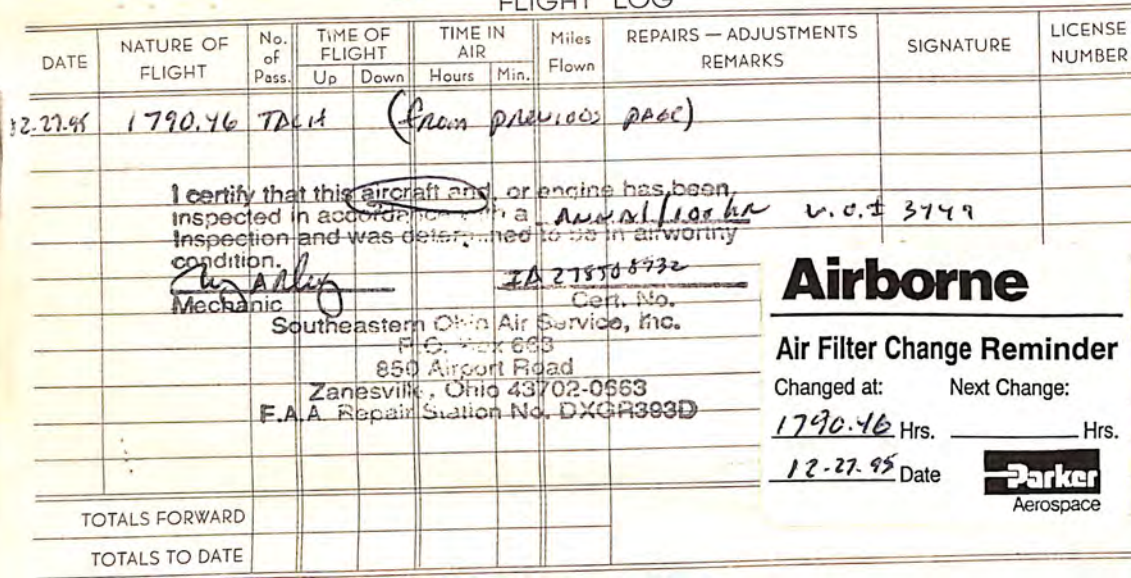 FLIGHT LOG
DATE NATURE OF FLIGHT No. of Pass. TIME OF FLIGHT Up Down TIME IN AIR Hours Min. Miles Flown REPAIRS — ADJUSTMENTS REMARKS SIGNATURE LICENSE NUMBER
12-27-95 1790.46 TACH (from previous page)
I certify that this aircraft and, or engine has been
inspected in accordance with a Annual/100 hr W.O.# 3749
Inspection and was determined to be in airworthy
condition.
IA 278508932
Mechanic Cert. No.
Southeastern Ohio Air Service, Inc.
P.O. Box 663
850 Airport Road
Zanesville, Ohio 43702-0663
F.A.A. Repair Station No. DXGR393D
Airborne
Air Filter Change Reminder
Changed at: Next Change:
1790.46 Hrs. Hrs.
12-27-95 Date Parker
Aerospace
TOTALS FORWARD
TOTALS TO DATE